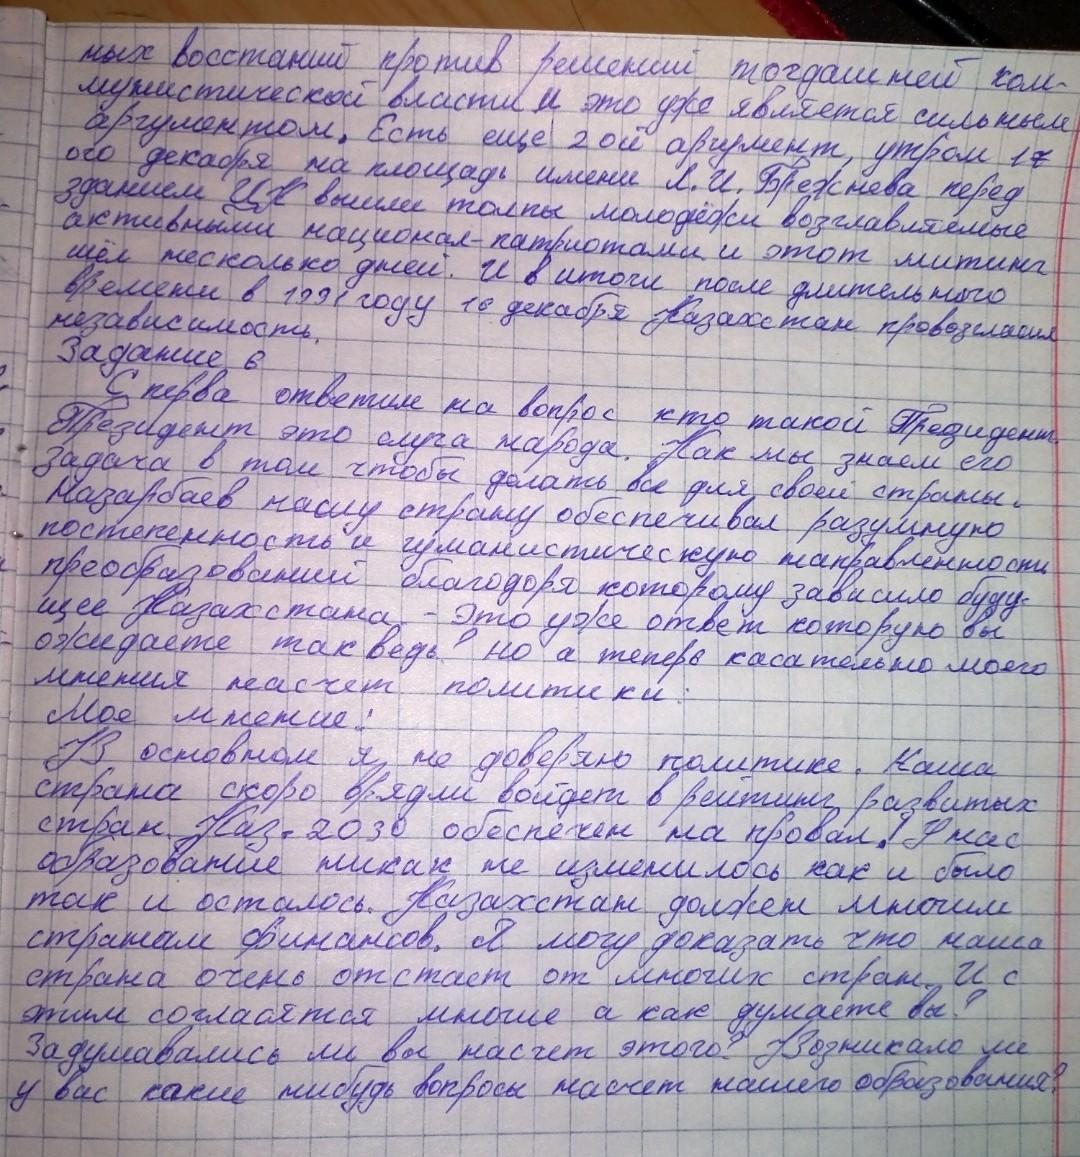 ных восстаний против решений тогдашней ком-
мунистической власти и это уже является сильным
аргументом. Есть еще 2ой аргумент, утром 17
ого декабря на площадь имени Л.И. Брежнева перед
зданием ЦК вышли толпы молодёжи возглавляемые
активными национал-патриотами и этот митинг
шёл несколько дней. И в итоги после длительного
времени в 1991 году 16 декабря Казахстан провозгласил
независимость.
Задание 6
Сперва ответим на вопрос кто такой Президент.
Президент это слуга народа. Как мы знаем его
задача в том чтобы делать все для своей страны.
Назарбаев нашу страну обеспечивал разумную
постепенность и гуманистическую направленности
преобразований благодоря которому зависило буду-
щее Казахстана - это уже ответ которую вы
ожидаете так ведь? но а теперь касательно моего
мнения насчет политики:
Мое мнение:
В основном я не доверяю политике. Наша
страна скоро врядли войдет в рейтинг развитых
стран. Каз-2030 обеспечен на провал! У нас
образование никак не изменилось как и было
так и осталось. Казахстан должен многим
странам финансов. Я могу доказать что наша
страна очень отстает от многих стран. И с
этим согласятся многие а как думаете вы?
Задумавались ли вы насчет этого? Возникало ли
у вас какие нибудь вопросы насчет нашего образования?